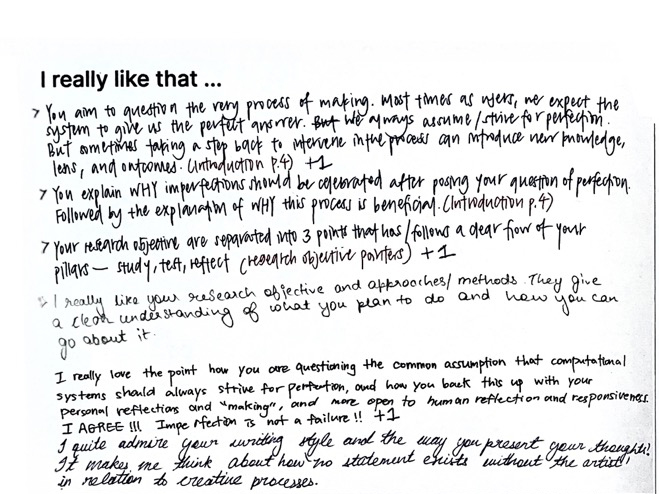 I really like that ...
> You aim to question the very process of making. Most times as users, we expect the
system to give us the perfect answer. But we always assume/strive for perfection.
But sometimes taking a step back to intervene in the process can introduce new knowledge,
lens, and outcomes. (Introduction p.4) +1
> You explain WHY imperfections should be celebrated after posing your question of perfection.
Followed by the explanation of WHY this process is beneficial. (Introduction p.4)
> Your research objective are separated into 3 points that has/follows a clear flow of your
pillars — study, test, reflect (research objective pointers) +1
I really like your research objective and approaches/methods. They give
a clear understanding of what you plan to do and how you can
go about it.
I really love the point how you are questioning the common assumption that computational
systems should always strive for perfection, and how you back this up with your
personal reflections and "making", and more open to human reflection and responsiveness.
I AGREE !!! Imperfection is not a failure!! +1
I quite admire your writing style and the way you present your thoughts!
It makes me think about how 'no statement exists without the artist'
in relation to creative processes.